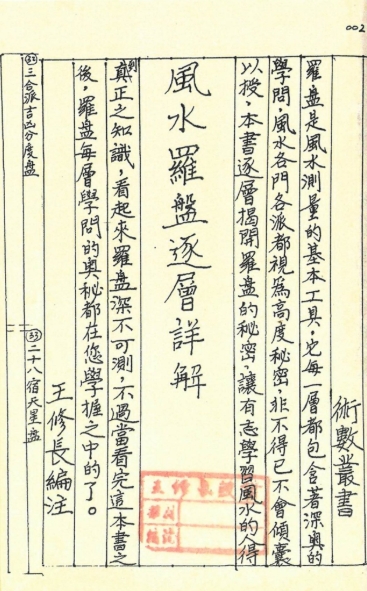 002
術數叢書
羅盤是風水測量的基本工具,它每一層都包含著深奥的
學問,風水各門各派都視為高度秘密,非不得已不會傾囊
以授,本書逐層揭開羅盤的秘密,讓有志學習風水的人得
風水羅盤逐層詳解
到真正之知識,看起來羅盤深不可測,不過當看完這本書之
後,羅盤每層學問的奥秘都在您學握之中的了。
王修長編注
㉜三合派吉凶分度盤
㉝二十八宿天星盤